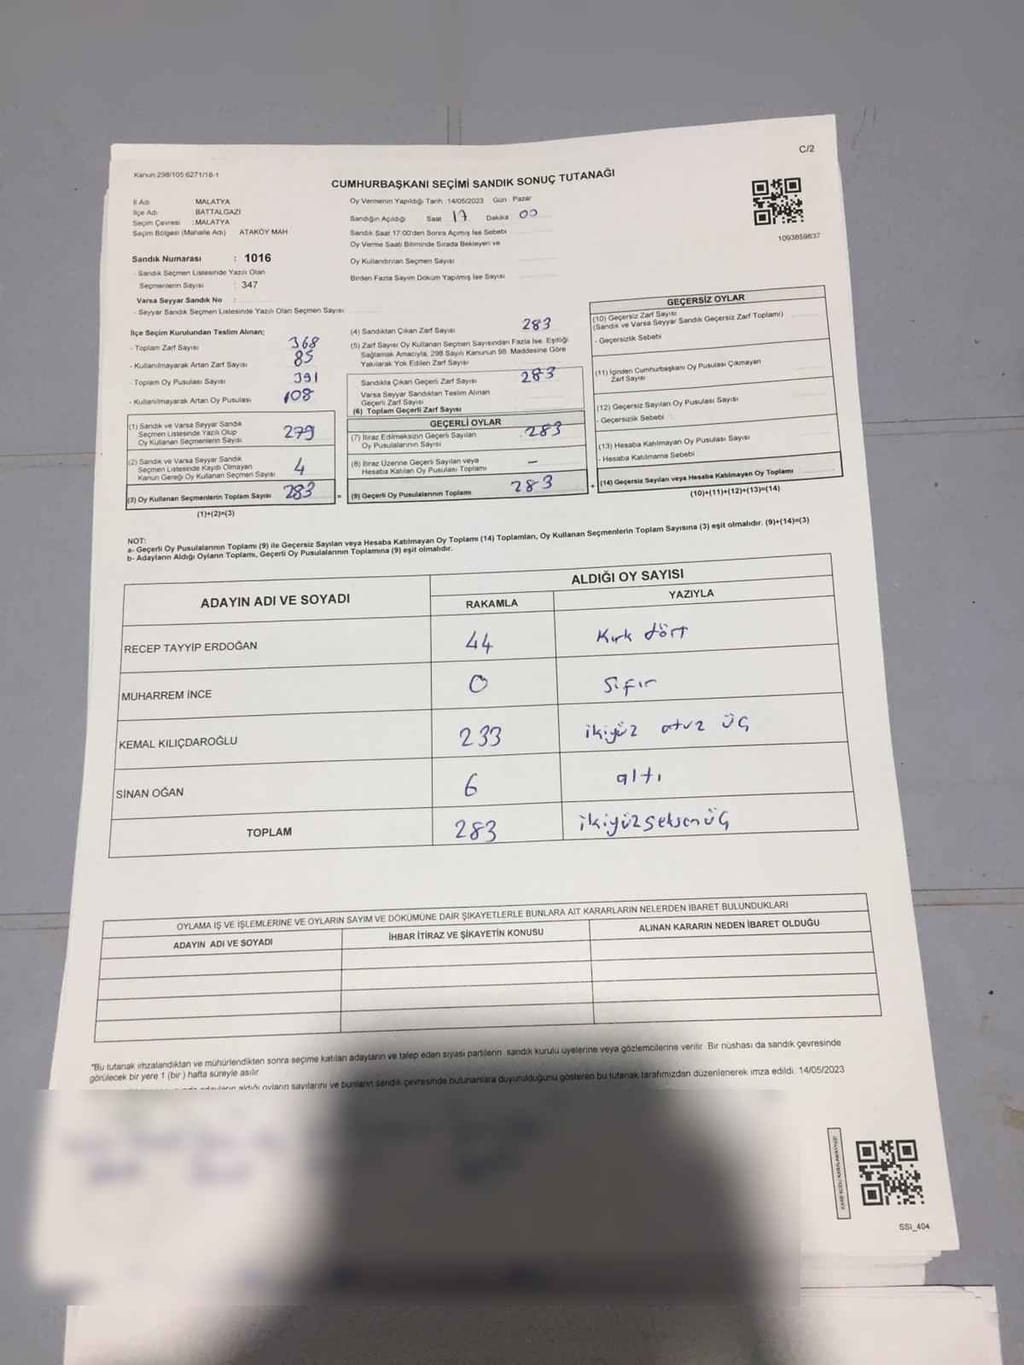 C/2
Kanun:298/105 6271/16-1
CUMHURBAŞKANI SEÇİMİ SANDIK SONUÇ TUTANAĞI
İl Adı MALATYA
İlçe Adı BATTALGAZİ
Seçim Çevresi :MALATYA
Seçim Bölgesi (Mahalle Adı) ATAKÖY MAH
Oy Vermenin Yapıldığı Tarih :14/05/2023 Gün Pazar
Sandığın Açıldığı Saat 17 Dakika 00
Sandık Saat 17:00'den Sonra Açımış İse Sebebi
Oy Verme Saati Bitiminde Sırada Bekleyen ve
Oy Kullandırılan Seçmen Sayısı
Birden Fazla Sayım Döküm Yapılmış İse Sayısı
1093859837
Sandık Numarası : 1016
- Sandık Seçmen Listesinde Yazılı Olan
Seçmenlerin Sayısı : 347
Varsa Seyyar Sandık No :
- Seyyar Sandık Seçmen Listesinde Yazılı Olan Seçmen Sayısı
İlçe Seçim Kurulundan Teslim Alınan;
- Toplam Zarf Sayısı 368
- Kullanılmayarak Artan Zarf Sayısı 85
- Toplam Oy Pusulası Sayısı 391
- Kullanılmayarak Artan Oy Pusulası 108
(1) Sandık ve Varsa Seyyar Sandık
Seçmen Listesinde Yazılı Olup
Oy Kullanan Seçmenlerin Sayısı 279
(2) Sandık ve Varsa Seyyar Sandık
Seçmen Listesinde Kaydı Olmayan
Kanun Gereği Oy Kullanan Seçmen Sayısı 4
(3) Oy Kullanan Seçmenlerin Toplam Sayısı 283
(1)+(2)=(3)
(4) Sandıktan Çıkan Zarf Sayısı 283
(5) Zarf Sayısı Oy Kullanan Seçmen Sayısından Fazla İse, Eşitliği
Sağlamak Amacıyla, 298 Sayılı Kanunun 98. Maddesine Göre
Yakılarak Yok Edilen Zarf Sayısı
Sandıkta Çıkan Geçerli Zarf Sayısı 283
Varsa Seyyar Sandıktan Teslim Alınan
Geçerli Zarf Sayısı
(6) Toplam Geçerli Zarf Sayısı
GEÇERLİ OYLAR
(7) İtiraz Edilmeksizin Geçerli Sayılan
Oy Pusulalarının Sayısı 283
(8) İtiraz Üzerine Geçerli Sayılan veya
Hesaba Katılan Oy Pusulası Toplamı –
= (9) Geçerli Oy Pusulalarının Toplamı 283
GEÇERSİZ OYLAR
(10) Geçersiz Zarf Sayısı
(Sandık ve Varsa Seyyar Sandık Geçersiz Zarf Toplamı)
- Geçersizlik Sebebi
(11) İçinden Cumhurbaşkanı Oy Pusulası Çıkmayan
Zarf Sayısı
(12) Geçersiz Sayılan Oy Pusulası Sayısı
- Geçersizlik Sebebi
(13) Hesaba Katılmayan Oy Pusulası Sayısı
- Hesaba Katılmama Sebebi
+ (14) Geçersiz Sayılan veya Hesaba Katılmayan Oy Toplamı
(10)+(11)+(12)+(13)=(14)
NOT:
a- Geçerli Oy Pusulalarının Toplamı (9) ile Geçersiz Sayılan veya Hesaba Katılmayan Oy Toplamı (14) Toplamları, Oy Kullanan Seçmenlerin Toplam Sayısına (3) eşit olmalıdır. (9)+(14)=(3)
b- Adayların Aldığı Oyların Toplamı, Geçerli Oy Pusulalarının Toplamına (9) eşit olmalıdır.
ADAYIN ADI VE SOYADI ALDIĞI OY SAYISI
RAKAMLA YAZIYLA
RECEP TAYYİP ERDOĞAN 44 Kırk dört
MUHARREM İNCE 0 Sıfır
KEMAL KILIÇDAROĞLU 233 ikiyüz otuz üç
SİNAN OĞAN 6 altı
TOPLAM 283 ikiyüzseksenüç
OYLAMA İŞ VE İŞLEMLERİNE VE OYLARIN SAYIM VE DÖKÜMÜNE DAİR ŞİKAYETLERLE BUNLARA AİT KARARLARIN NELERDEN İBARET BULUNDUKLARI
ADAYIN ADI VE SOYADI İHBAR İTİRAZ VE ŞİKAYETİN KONUSU ALINAN KARARIN NEDEN İBARET OLDUĞU
"Bu tutanak imzalandıktan ve mühürlendikten sonra seçime katılan adayların ve talep eden siyasi partilerin sandık kurulu üyelerine veya gözlemcilerine verilir. Bir nüshası da sandık çevresinde
görülecek bir yere 1 (bir) hafta süreyle asılır.
aldığı oyların sayılarını ve bunların sandık çevresinde bulunanlara duyurulduğunu gösteren bu tutanak tarafımızdan düzenlenerek imza edildi. 14/05/2023
SSİ_404